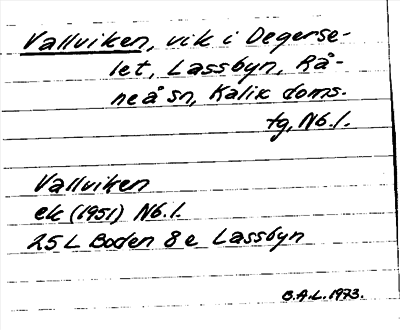 Vallviken, vik i Degerse-
let, Lassbyn, Rå-
neå sn, Kalix doms.
tg, Nb.l.
Vallviken
ek (1951) Nb.l.
25 L Boden 8 e Lassbyn
B.A.L. 1973.